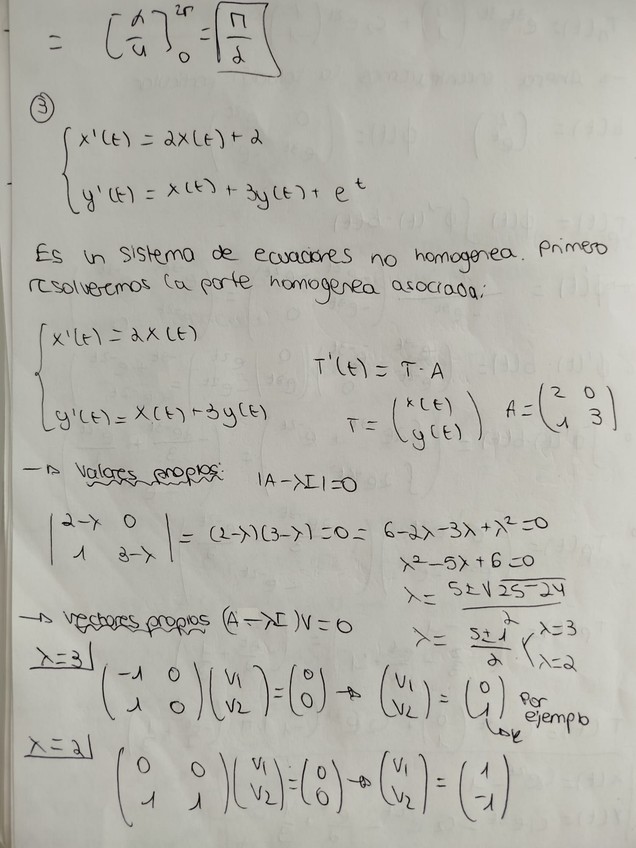 = [α/4]₀^{2π} = π/2
③
{ x'(t) = 2x(t) + 2
y'(t) = x(t) + 3y(t) + e^t
Es un sistema de ecuaciones no homogenea. Primero
resolveremos la parte homogenea asociada:
{ x'(t) = 2x(t)
T'(t) = T · A
y'(t) = x(t) + 3y(t)
T = (x(t) y(t)) A = (2 0 1 3)
→ Valores propios: |A - λI| = 0
|2-λ 0 1 3-λ| = (2-λ)(3-λ) = 0 = 6 - 2λ - 3λ + λ² = 0
λ² - 5λ + 6 = 0
λ = 5 ± √25-24 / 2
→ Vectores propios (A - λI)V = 0
λ = 5 ± 1 / 2 < λ = 3 λ = 2
λ = 3 (-1 0 1 0) (v₁ v₂) = (0 0) → (v₁ v₂) = (0 1) Por ejemplo
λ = 2 (0 0 1 1) (v₁ v₂) = (0 0) → (v₁ v₂) = (1 -1)